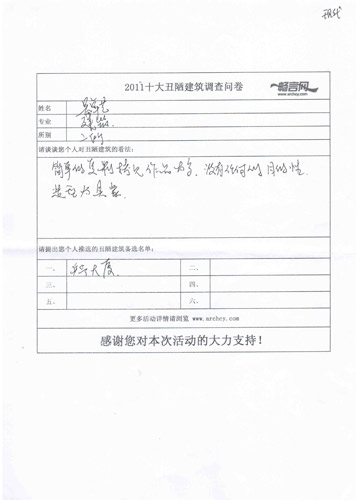 2011十大丑陋建筑调查问卷
畅言网
www.archcy.com
姓名
专业 建筑
所别 二所
请谈谈您个人对丑陋建筑的看法:
简单的
作品为主,没有任何的目的性
造型为
请推出您个人推选的丑陋建筑备选名单:
一、 大厦 二、
三、 四、
五、 六、
更多活动详情请浏览 www.archcy.com
感谢您对本次活动的大力支持!